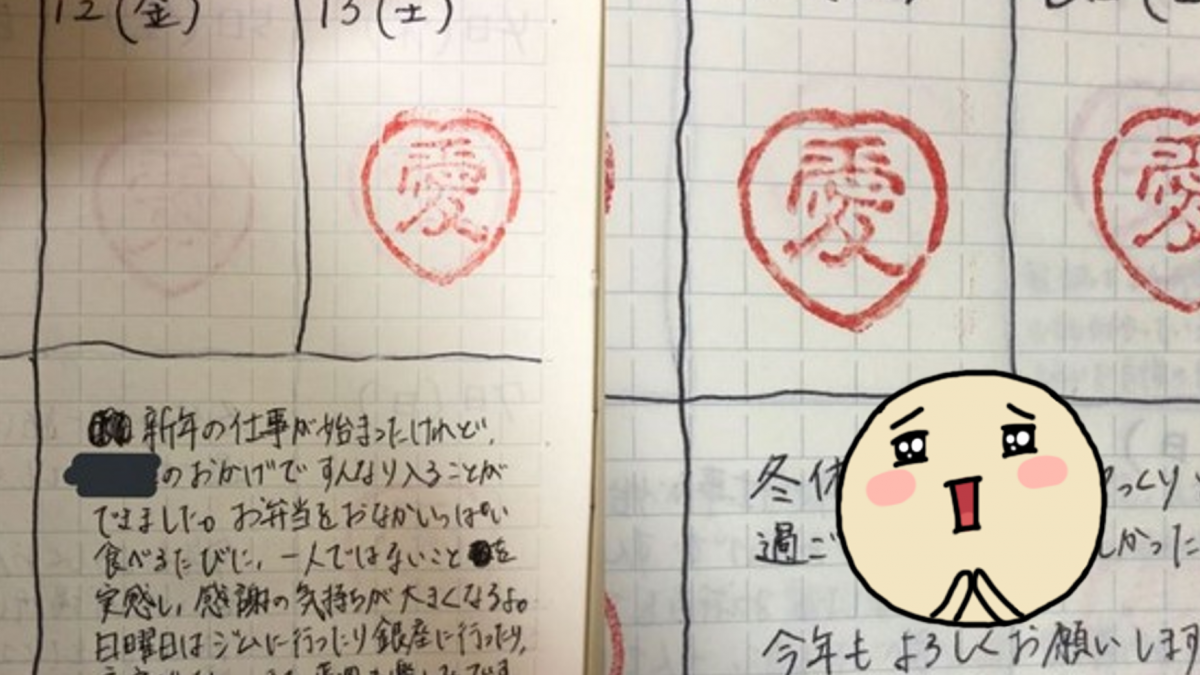 12(金)
13(土)
愛
新年の仕事が始まったけれど、
のおかげですんなり入ることが
できました。お弁当をおなかいっぱい
食べるたびに、一人ではないことを
実感し、感謝の気持ちが大きくなるよ。
日曜日はジムに行ったり銀座に行ったり、
愛
愛
冬休 っくり
過ご しかった
今年もよろしくお願いします